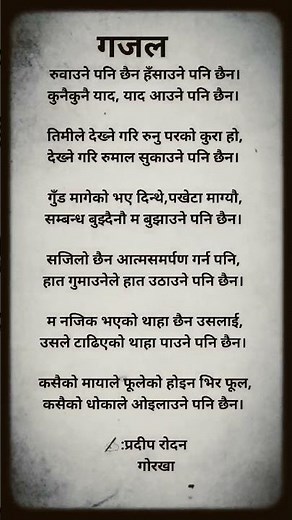 गजल
रुवाउने पनि छैन हँसाउने पनि छैन।
कुनैकुनै याद, याद आउने पनि छैन।
तिमीले देख्ने गरि रुनु परको कुरा हो,
देख्ने गरि रुमाल सुकाउने पनि छैन।
गुँड मागेको भए दिन्थे,पखेटा माग्यौ,
सम्बन्ध बुझ्दैनौ म बुझाउने पनि छैन।
सजिलो छैन आत्मसमर्पण गर्न पनि,
हात गुमाउनेले हात उठाउने पनि छैन।
म नजिक भएको थाहा छैन उसलाई,
उसले टाढिएको थाहा पाउने पनि छैन।
कसैको मायाले फूलेको होइन भिर फूल,
कसैको धोकाले ओइलाउने पनि छैन।
✍:प्रदीप रोदन
गोरखा